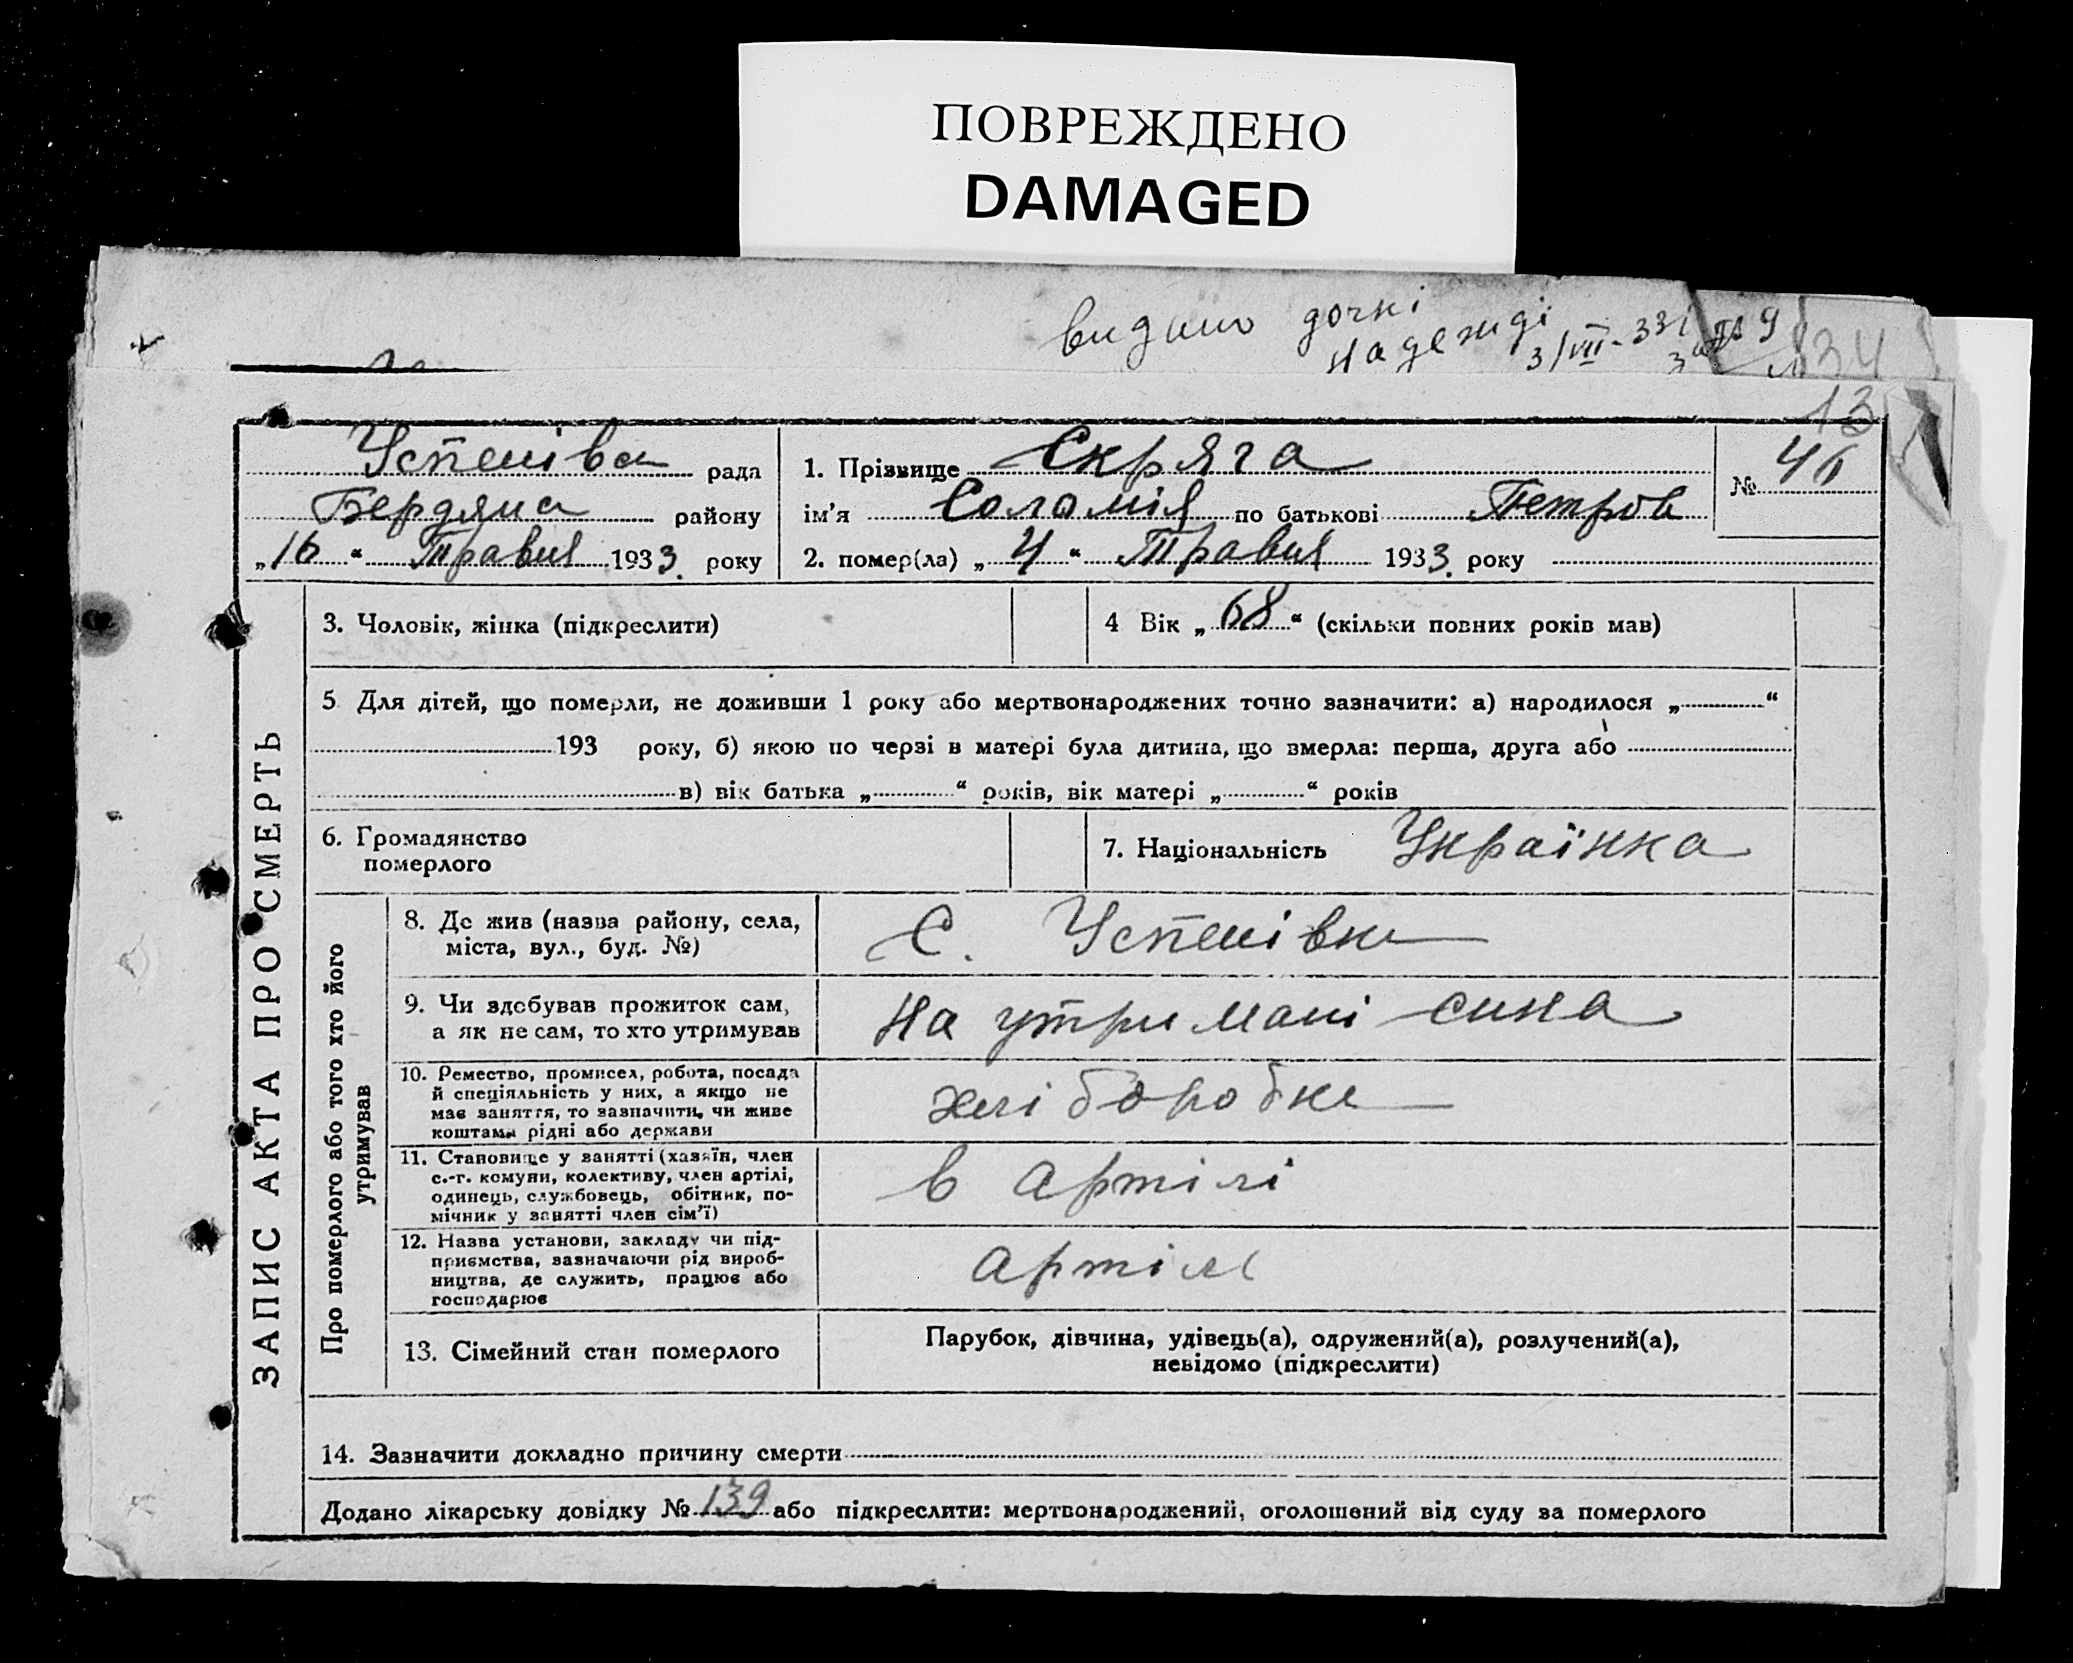 ПОВРЕЖДЕНО
DAMAGED
видано дочкі
Надежиді
3/VII-33
34
13
Успенівка рада
Бердянс району
„16“ Травня 1933. року
1. Прізвище Скряга
№ 46
ім'я Соломія по батькові Петров
2. помер(ла) „4“ Травня 1933. року
3. Чоловік, жінка (підкреслити)
4 Вік „68“ (скільки повних років мав)
5 Для дітей, що померли, не доживши 1 року або мертвонароджених точно зазначити: а) народилося „ “
193 року, б) якою по черзі в матері була дитина, що вмерла: перша, друга або
в) вік батька „ “ років, вік матері „ “ років
6. Громадянство
померлого
7. Національність Українка
ЗАПИС АКТА ПРО СМЕРТЬ
Про померлого або того хто його
утримував
8. Де жив (назва району, села,
міста, вул., буд. №)
С. Успенівка
9. Чи здобував прожиток сам,
а як не сам, то хто утримував
На утримані сина
10. Ремество, промисел, робота, посада
й спеціяльність у них, а якщо не
має заняття, то зазначити, чи живе
коштами рідні або держави
хліборобка
11. Становище у занятті (хазяїн, член
с.-г. комуни, колективу, член артілі,
одинець, службовець, обітник, по-
мічник у занятті член сім'ї)
в артілі
12. Назва установи, закладу чи під-
приємства, зазначаючи рід вироб-
ництва, де служить, працює або
господарює
артіль
13. Сімейний стан померлого
Парубок, дівчина, удівець(а), одружений(а), розлучений(а),
невідомо (підкреслити)
14. Зазначити докладно причину смерти
Додано лікарську довідку № 139 або підкреслити: мертвонароджений, оголошений від суду за померлого